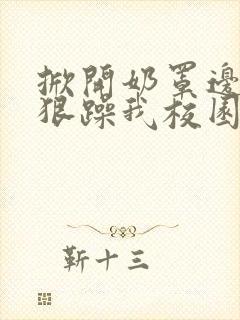 掀開奶罩邊
狠躁我校園
靳十三